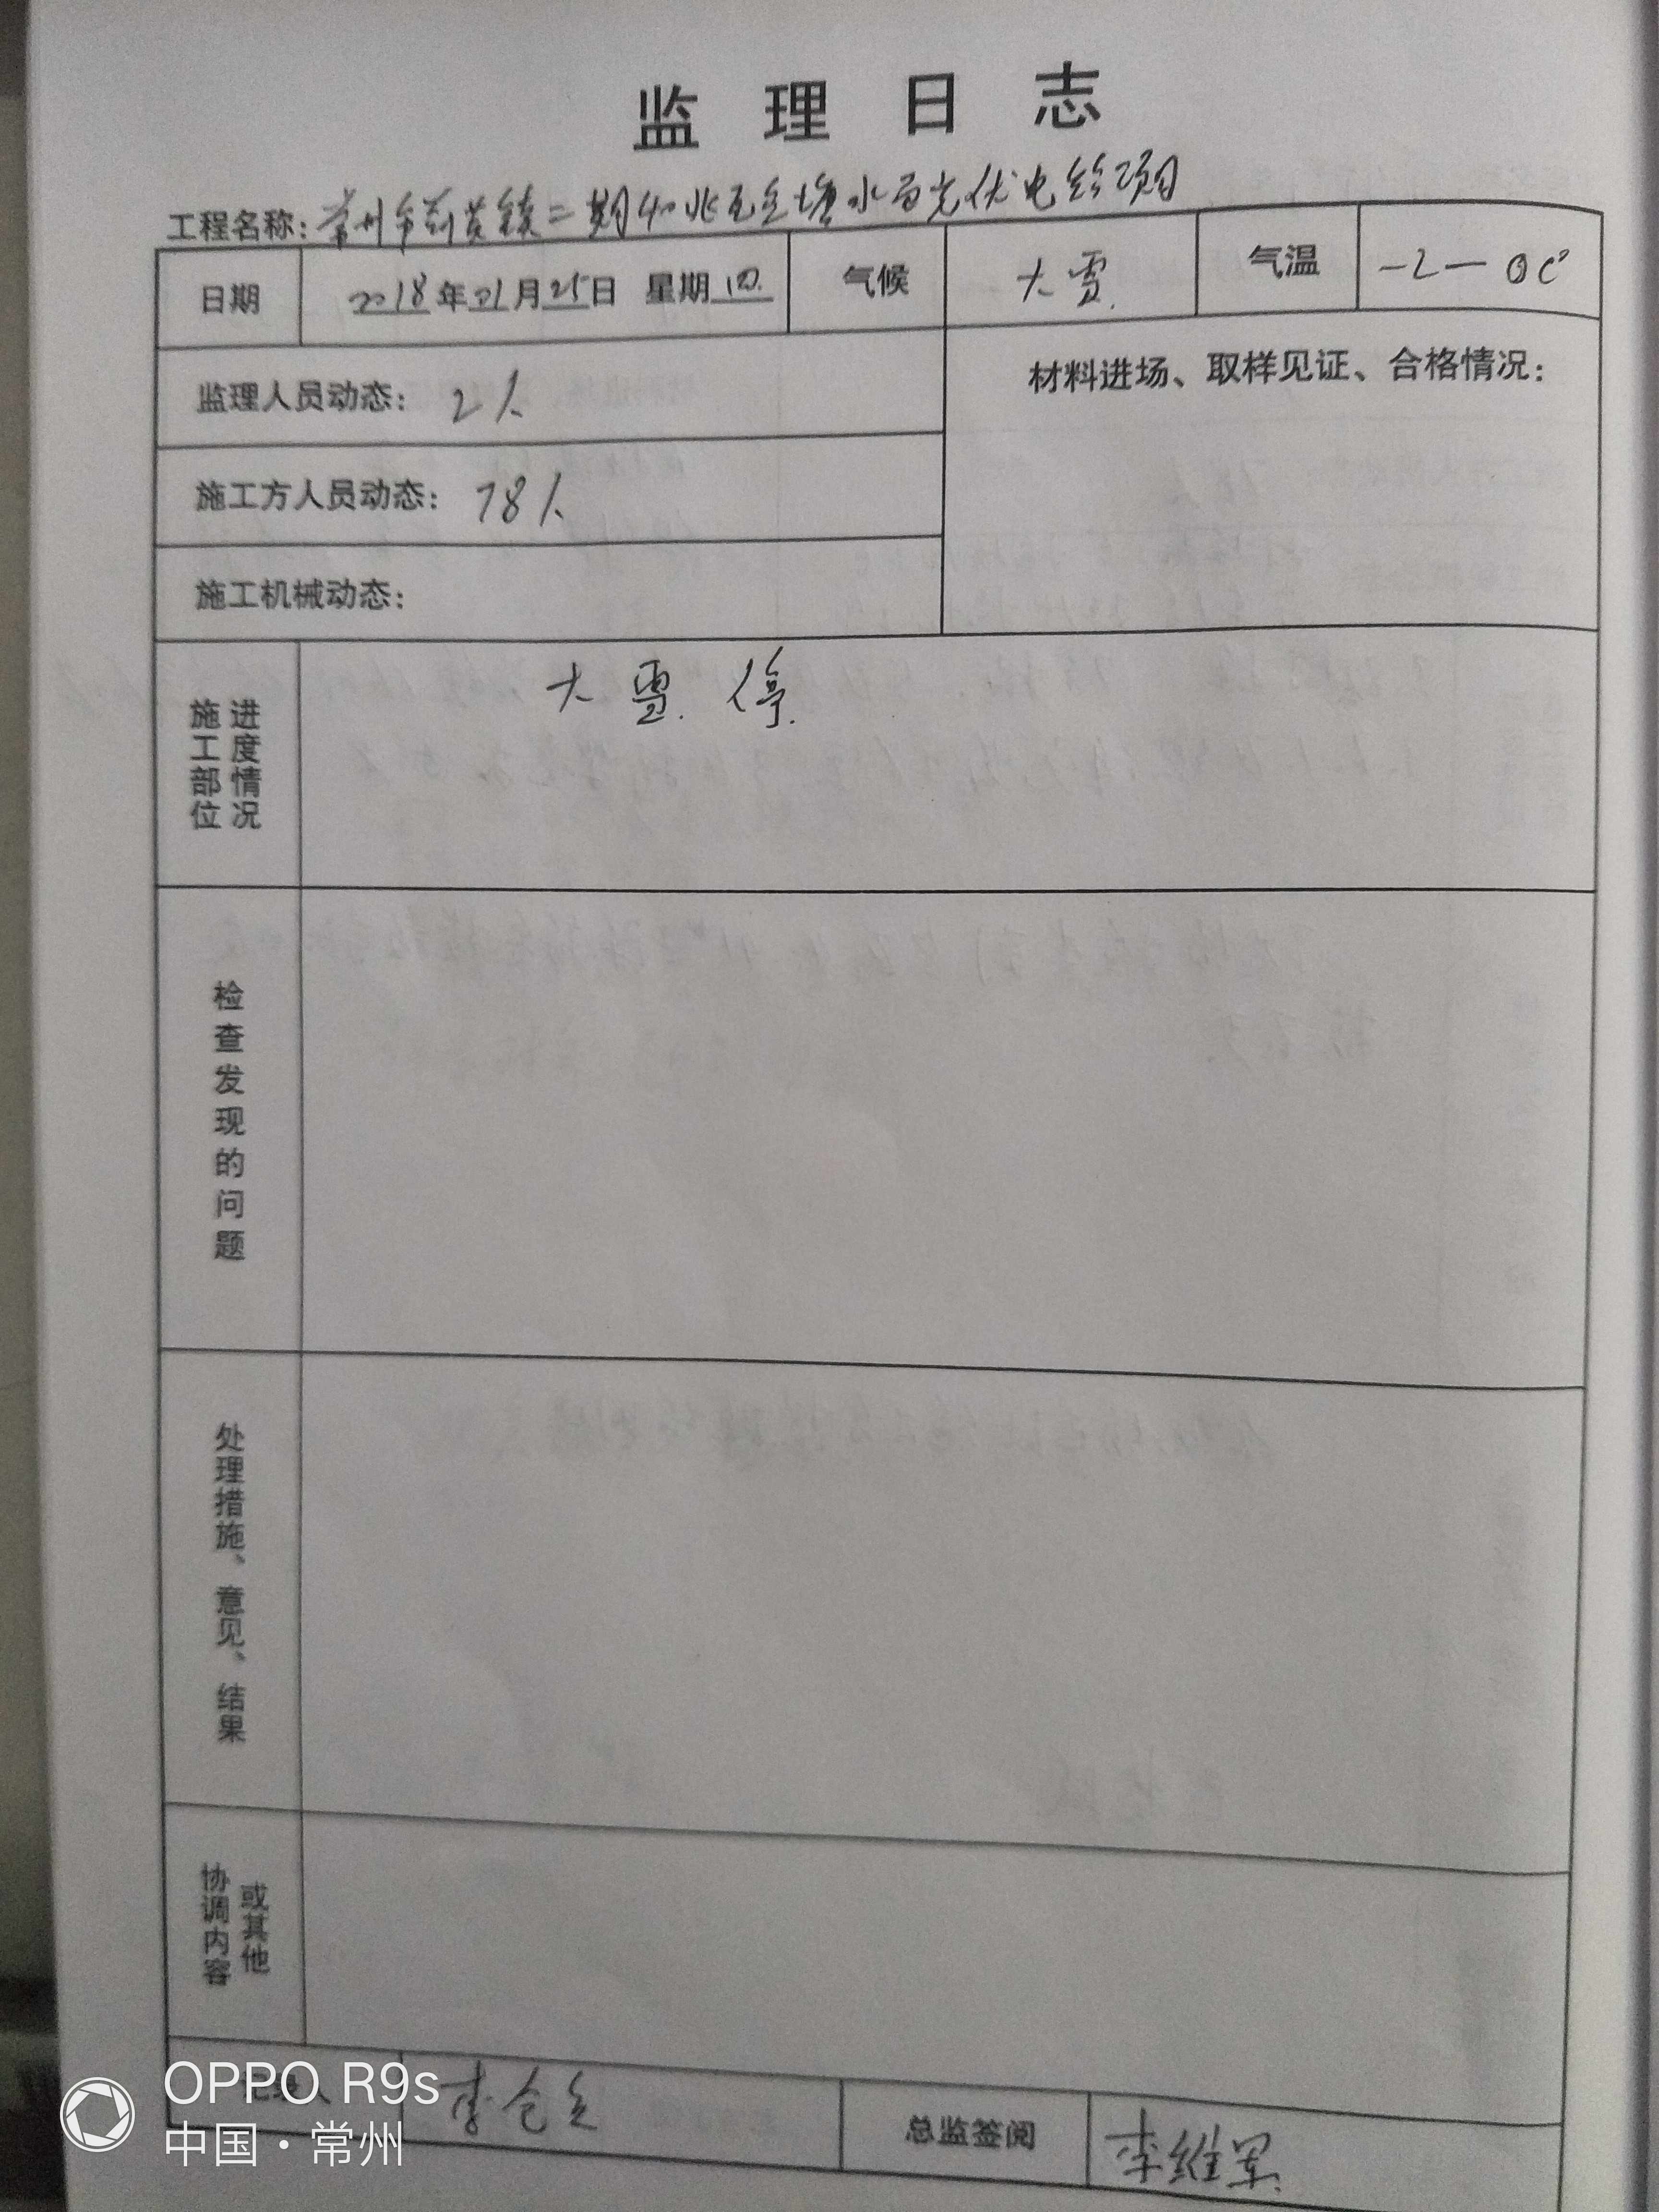 监理日志
工程名称: 常州市薛埠镇二期40兆瓦鱼塘水面光伏电站项目
日期 2018年01月25日 星期四 气候 大雪. 气温 -2—0C°
监理人员动态: 2人 材料进场、取样见证、合格情况:
施工方人员动态: 78人
施工机械动态:
施工部位 进度情况 大雪.停.
检查发现的问题
处理措施、意见、结果
协调内容 或其他
记录人 李 总监签阅 李维军
OPPO R9s
中国·常州